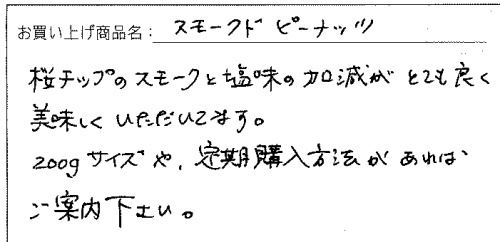 お買い上げ商品名： スモークド ピーナッツ
桜チップのスモークと塩味の加減がとても良く
美味しくいただいてます。
200gサイズや、定期購入方法があれば
ご案内下さい。